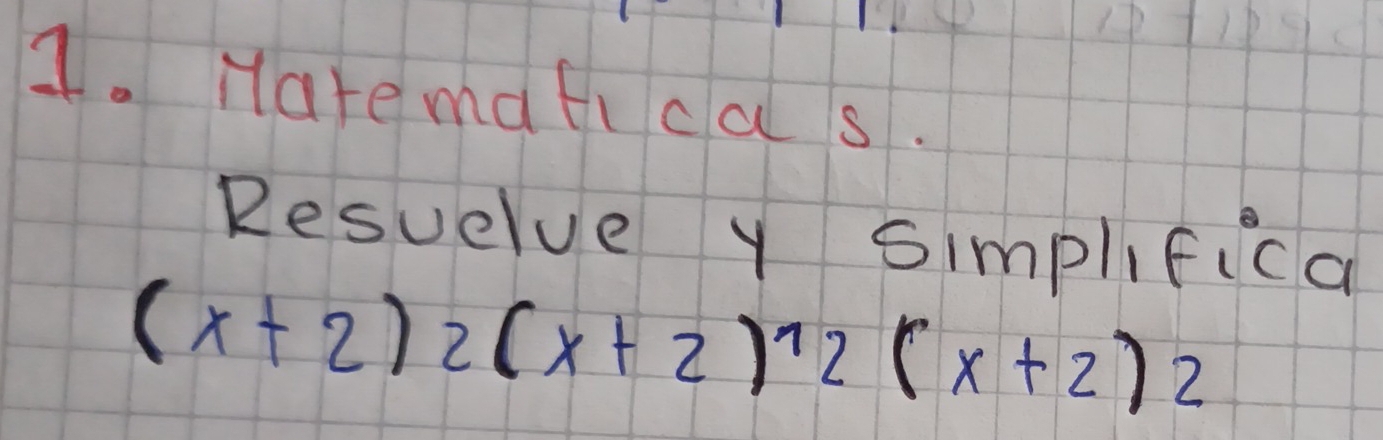 1. Matematicas.
Resuelve y simplifica
(x+2)2(x+2)^2(x+2)2